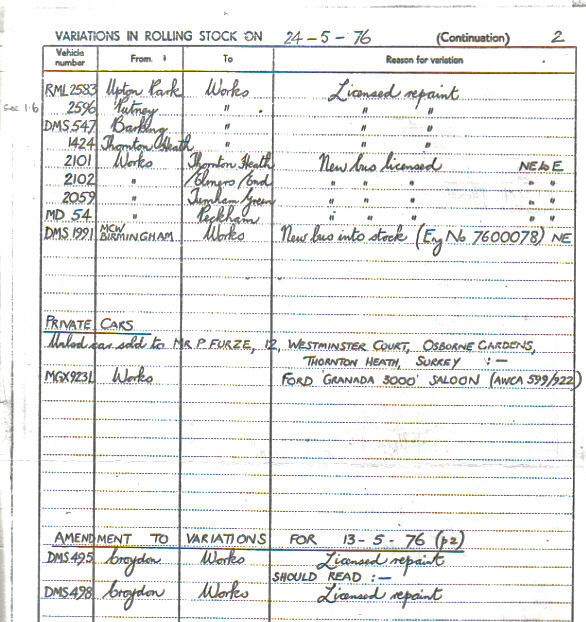 VARIATIONS IN ROLLING STOCK ON 24-5-76 (Continuation) 2
Vehicle number From To Reason for variation
RML 2583 Upton Park Works Licensed repaint
see 1.6 2596 Putney " " "
DMS 547 Barking " " "
1424 Thornton Heath " " "
2101 Works Thornton Heath New bus licensed NE to E
2102 " Elmers End " " " " "
2059 " Turnham Green " " " " "
MD 54 " Peckham " " " " "
DMS 1991 MCW BIRMINGHAM Works New bus into stock (Eng No 7600078) NE
PRIVATE CARS
Unlsd car sold to MR P. FURZE, 12, WESTMINSTER COURT, OSBORNE GARDENS,
THORNTON HEATH, SURREY :-
MGX923L Works FORD 'GRANADA 3000' SALOON (AWCA 599/922)
AMENDMENT TO VARIATIONS FOR 13-5-76 (p2)
DMS 495 Croydon Works Licensed repaint
SHOULD READ :-
DMS 498 Croydon Works Licensed repaint